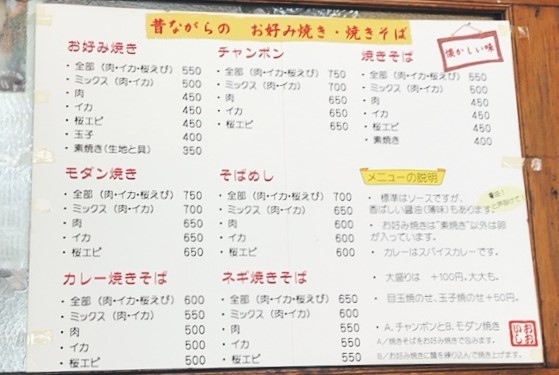 昔ながらの お好み焼き・焼きそば
懐かしい味
お好み焼き
・全部(肉・イカ・桜えび) 550
・ミックス(肉・イカ) 500
・肉 450
・イカ 450
・桜エビ 450
・玉子 400
・素焼き(生地と具) 350
チャンポン
・全部(肉・イカ・桜えび) 750
・ミックス(肉・イカ) 700
・肉 650
・イカ 650
・桜エビ 650
焼きそば
・全部(肉・イカ・桜えび) 550
・ミックス(肉・イカ) 500
・肉 450
・イカ 450
・桜エビ 450
・素焼き 400
モダン焼き
・全部(肉・イカ・桜えび) 750
・ミックス(肉・イカ) 700
・肉 650
・イカ 650
・桜エビ 650
そばめし
・全部(肉・イカ・桜えび) 700
・ミックス(肉・イカ) 650
・肉 600
・イカ 600
・桜エビ 600
カレー焼きそば
・全部(肉・イカ・桜えび) 600
・ミックス(肉・イカ) 550
・肉 500
・イカ 500
・桜エビ 500
ネギ焼きそば
・全部(肉・イカ・桜えび) 650
・ミックス(肉・イカ) 600
・肉 550
・イカ 550
・桜エビ 550
メニューの説明
・標準はソースですが、
香ばしい醤油(薄味)もあります。
・お好み焼きは"素焼き"以外は卵
が入っています。
・カレーはスパイスカレーです。
・大盛りは +100円。大大も。
・目玉焼のせ、玉子焼のせ+50円。
・A.チャンポンとB.モダン焼き
A/焼きそばをお好み焼きで包みます。
B/お好み焼きに麺を練り込んで焼き上げます。